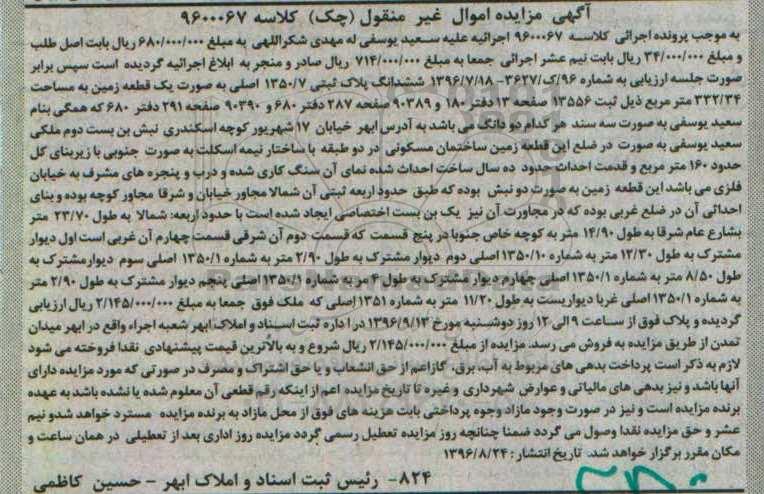 آگهی مزایده اموال غیر منقول (چک) کلاسه ۹۶۰۰۰۶۷
به موجب پرونده اجرائی کلاسه ۹۶۰۰۰۶۷ اجرائیه علیه سعید یوسفی له مهدی شکراللهی به مبلغ ۶۸۰/۰۰۰/۰۰۰ ریال بابت اصل طلب
و مبلغ ۳۴/۰۰۰/۰۰۰ ریال بابت نیم عشر اجرائی جمعا به مبلغ ۷۱۴/۰۰۰/۰۰۰ ریال صادر و منجر به ابلاغ اجرائیه گردیده است سپس برابر
صورت جلسه ارزیابی به شماره ۹۶/ک/۳۶۲۷-۱۳۹۶/۷/۱۸ ششدانگ پلاک ثبتی ۱۳۵۰/۷ اصلی به صورت یک قطعه زمین به مساحت
۳۳۲/۳۴ متر مربع ذیل ثبت ۱۳۵۵۶ صفحه ۱۳ دفتر ۱۸۰ و ۹۰۳۸۹ صفحه ۲۸۷ دفتر ۶۸۰ و ۹۰۳۹۰ صفحه ۲۹۱ دفتر ۶۸۰ که همگی بنام
سعید یوسفی به صورت سه سند هر کدام دو دانگ می باشد به آدرس ابهر خیابان ۱۷ شهریور کوچه اسکندری نبش بن بست دوم ملکی
سعید یوسفی به صورت در ضلع این قطعه زمین ساختمان مسکونی در دو طبقه با ساختار نیمه اسکلت به صورت جنوبی با زیربنای کل
حدود ۱۶۰ متر مربع و قدمت احداث حدود ده سال ساخت احداث شده نمای آن سنگ کاری شده و درب و پنجره های مشرف به خیابان
فلزی می باشد این قطعه زمین به صورت دو نبش بوده که طبق حدود اربعه ثبتی آن شمالا مجاور خیابان و شرقا مجاور کوچه بوده و بنای
احداثی آن در ضلع غربی بوده که در مجاورت آن نیز یک بن بست اختصاصی ایجاد شده است با حدود اربعه: شمالا به طول ۲۳/۷۰ متر
بشارع عام شرقا به طول ۱۴/۹۰ متر به کوچه خاص جنوبا در پنج قسمت که قسمت دوم آن شرقی قسمت چهارم آن غربی است اول دیوار
مشترک به طول ۱۲/۳۰ متر به شماره ۱۳۵۰/۱۰ اصلی دوم دیوار مشترک به طول ۲/۹۰ متر به شماره ۱۳۵۰/۱ اصلی سوم دیوارمشترک به
طول ۸/۵۰ متر به شماره ۱۳۵۰/۱ اصلی چهارم دیوار مشترک به طول ۴ متر به شماره ۱۳۵۰/۱ اصلی پنجم دیوار مشترک به طول ۲/۹۰ متر
به شماره ۱۳۵۰/۱ اصلی غربا دیواریست به طول ۱۱/۲۰ متر به شماره ۱۳۵۱ اصلی که ملک فوق جمعا به مبلغ ۲/۱۴۵/۰۰۰/۰۰۰ ریال ارزیابی
گردیده و پلاک فوق از ساعت ۹ الی ۱۲ روز دوشنبه مورخ ۱۳۹۶/۹/۱۳ در اداره ثبت اسناد و املاک ابهر شعبه اجراء واقع در ابهر میدان
تمدن از طریق مزایده به فروش می رسد. مزایده از مبلغ ۲/۱۴۵/۰۰۰/۰۰۰ ریال شروع و به بالاترین قیمت پیشنهادی نقدا فروخته می شود
لازم به ذکر است پرداخت بدهی های مربوط به آب، برق، گازاعم از حق انشعاب و یا حق اشتراک و مصرف در صورتی که مورد مزایده دارای
آنها باشد و نیز بدهی های مالیاتی و عوارض شهرداری و غیره تا تاریخ مزایده اعم از اینکه رقم قطعی آن معلوم شده یا نشده باشد به عهده
برنده مزایده است و نیز در صورت وجود مازاد وجوه پرداختی بابت هزینه های فوق از محل مازاد به برنده مزایده مسترد خواهد شدو نیم
عشر و حق مزایده نقدا وصول می گردد ضمنا چنانچه روز مزایده تعطیل رسمی گردد مزایده روز اداری بعد از تعطیلی در همان ساعت و
مکان مقرر برگزار خواهد شد. تاریخ انتشار: ۱۳۹۶/۸/۲۴
۸۲۴- رئیس ثبت اسناد و املاک ابهر - حسین کاظمی